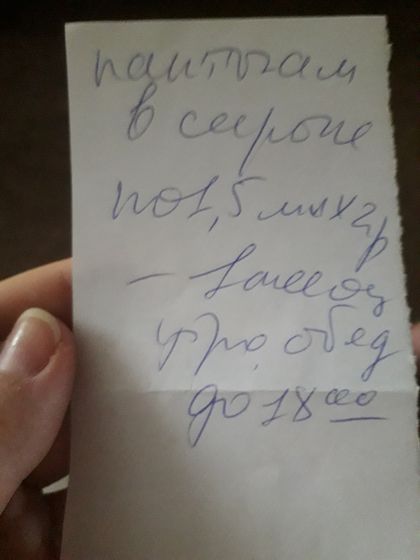 пантогам
в сиропе
по 1,5 мл х 2 р
– 1 месяц
утро, обед
до 18 00